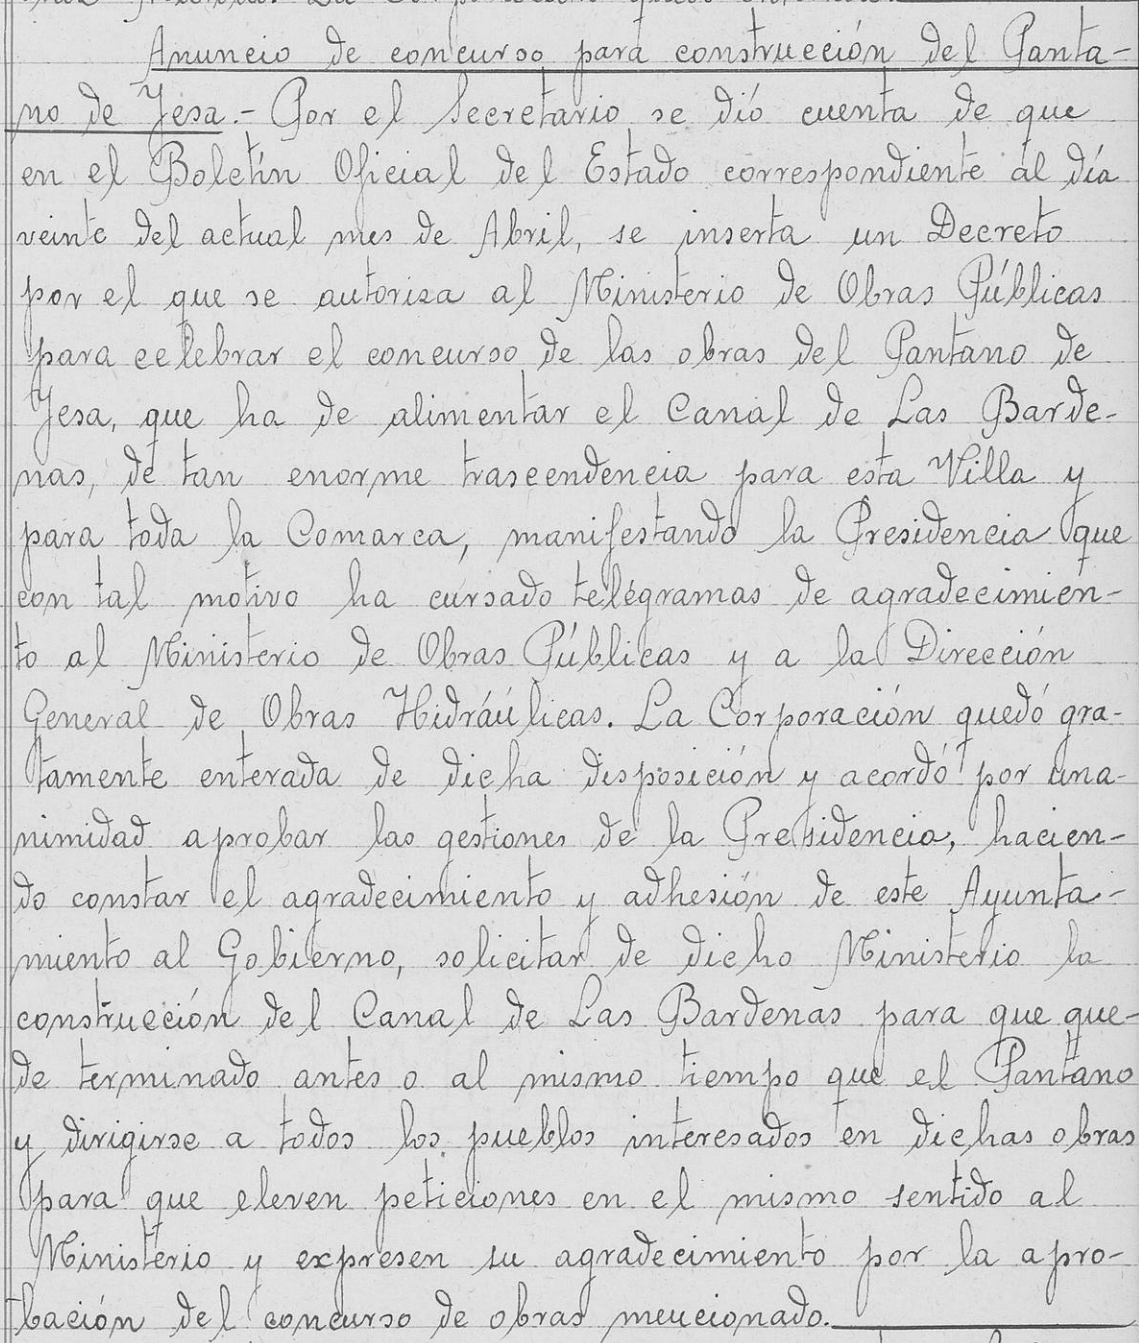 Anuncio de concurso para construcción del Panta-
no de Yesa.- Por el Secretario se dió cuenta de que
en el Boletín Oficial del Estado correspondiente al día
veinte del actual mes de Abril, se inserta un Decreto
por el que se autoriza al Ministerio de Obras Públicas
para celebrar el concurso de las obras del Pantano de
Yesa, que ha de alimentar el Canal de Las Barde-
nas, de tan enorme trascendencia para esta Villa y
para toda la Comarca, manifestando la Presidencia que
con tal motivo ha cursado telégramas de agradecimien-
to al Ministerio de Obras Públicas y a la Dirección
General de Obras Hidráúlicas. La Corporación quedó gra-
tamente enterada de dicha disposición y acordó por una-
nimidad aprobar las gestiones de la Presidencia, hacien-
do constar el agradecimiento y adhesión de este Ayunta-
miento al Gobierno, solicitar de dicho Ministerio la
construcción del Canal de Las Bardenas para que que-
de terminado antes o al mismo tiempo que el Pantano
y dirigirse a todos los pueblos interesados en dichas obras
para que eleven peticiones en el mismo sentido al
Ministerio y expresen su agradecimiento por la apro-
bación del concurso de obras mencionado.